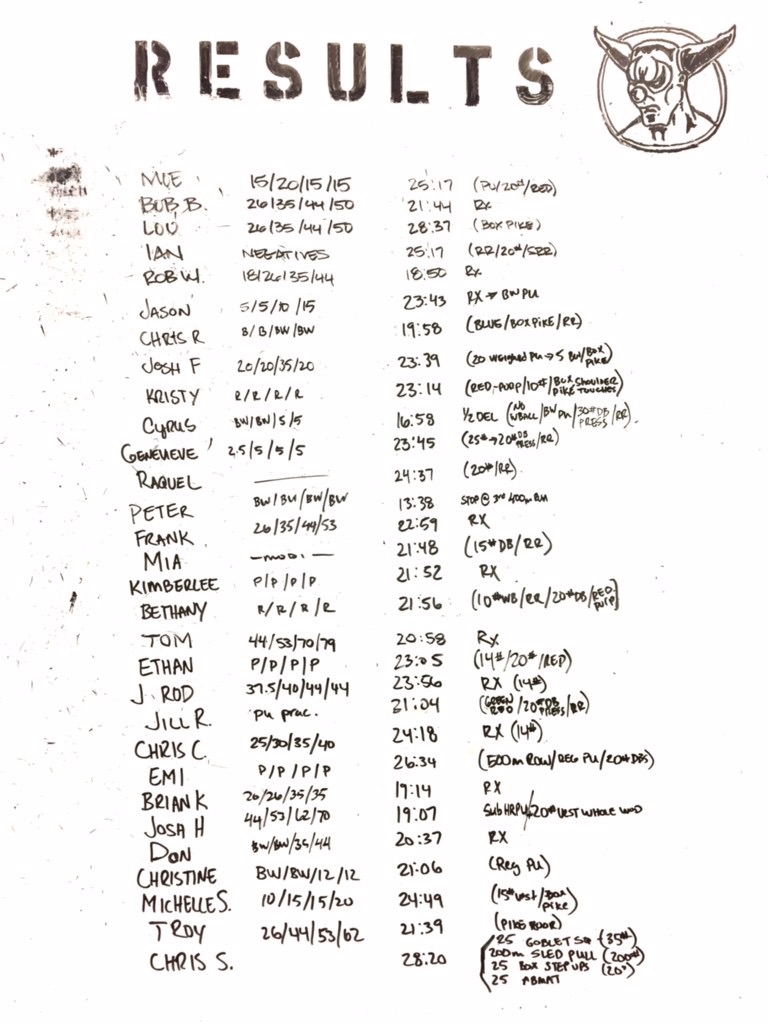 RESULTS
15/20/15/15 25:17 (PU/20#/RED)
BOB B. 26/35/44/50 21:44 RX
LOU 26/35/44/50 28:37 (BOX PIKE)
IAN NEGATIVES 25:17 (RR/20#/
ROB W. 18/26/35/44 18:50 RX
JASON 5/5/10/15 23:43 RX → BW PU
CHRIS R B/B/BW/BW 19:58 (BLUE/BOX PIKE/RR)
JOSH F 20/20/35/20 23:39 (20 WEIGHED PU → 5 BW/BOX PIKE)
KRISTY R/R/R/R 23:14 (RED-PURP/10#/BOX SHOULDER PIKE TOUCHES)
CYRUS BW/BW/5/5 16:58 1/2 DEL (NO WBALL/BW PU/30# DB PRESS/RR)
GENEVIEVE 2.5/5/5/5 23:45 (25# → 20# DB PRESS/RR)
RAQUEL 24:37 (20#/RR)
PETER BW/BW/BW/BW 13:38 STOP @ 3rd 400m RUN
FRANK 26/35/44/53 22:59 RX
MIA — MOD. — 21:48 (15# DB/RR)
KIMBERLEE P/P/P/P 21:52 RX
BETHANY R/R/R/R 21:56 (10# WB/RR/20# DB/RED-PURP)
TOM 44/53/70/79 20:58 RX
ETHAN P/P/P/P 23:05 (14#/20#/RED)
J. ROD 37.5/40/44/44 23:56 RX (14#)
JILL R. PU prac. 21:04 (GREEN RED/20# DB PRESS/RR)
CHRIS C. 25/30/35/40 24:18 RX (14#)
EMI P/P/P/P 26:34 (500m ROW/REG PU/20# DBS)
BRIAN K 26/26/35/35 19:14 RX
JOSH H 44/53/62/70 19:07 SUB HRPU/20# VEST WHOLE WOD
DON BW/BW/35/44 20:37 RX
CHRISTINE BW/BW/12/12 21:06 (Reg PU)
MICHELLE S. 10/15/15/20 24:49 (15# vest/BOX PIKE)
TROY 26/44/53/62 21:39 (PIKE FLOOR)
CHRIS S. 28:20 (25 GOBLET SQ (35#)
200m SLED PULL (200#)
25 BOX STEP UPS (20")
25 ABMAT